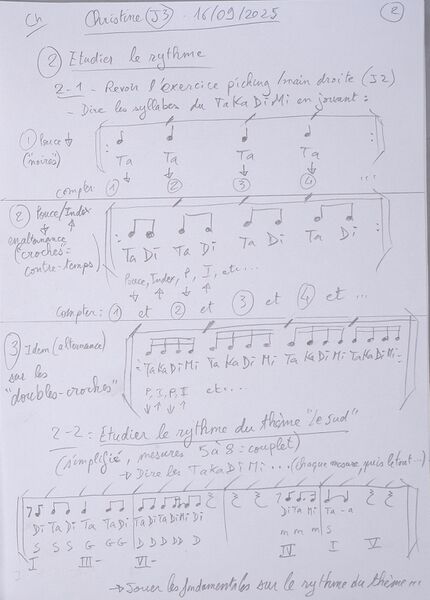 Ch Christine (J3) - 16/09/2025 (2)
(2) Etudier le rythme
2-1 - Revoir l'exercice picking/main droite (J2)
- Dire les syllabes du TaKaDiMi en jouant :
(1) Pouce ↓
("noires")
Ta Ta Ta Ta
compter (1) (2) (3) (4) ...
(2) Pouce/Index
en alternance
("croches"=
contre-temps)
Ta Di Ta Di Ta Di Ta Di
Pouce, Index, P, I, etc...
Compter : (1) et (2) et (3) et (4) et ...
(3) Idem (alternance)
sur les
"doubles-croches"
TaKaDiMi TaKaDiMi TaKaDiMi TaKaDiMi
P, I, P, I etc...
↓ ↑ ↓ ↑
2-2 : Etudier le rythme du thème "le Sud"
(simplifié, mesures 5 à 8 = couplet)
→ Dire les TaKaDiMi ... (chaque mesure, puis le tout...)
Di Ta Di Ta Di Ta Di Ta Di Mi Di Di Ta Mi Ta-a
S S S G G G D D D D D m m m S
I III- VI- IV I V
→ Jouer les fondamentales sur le rythme du thème ...